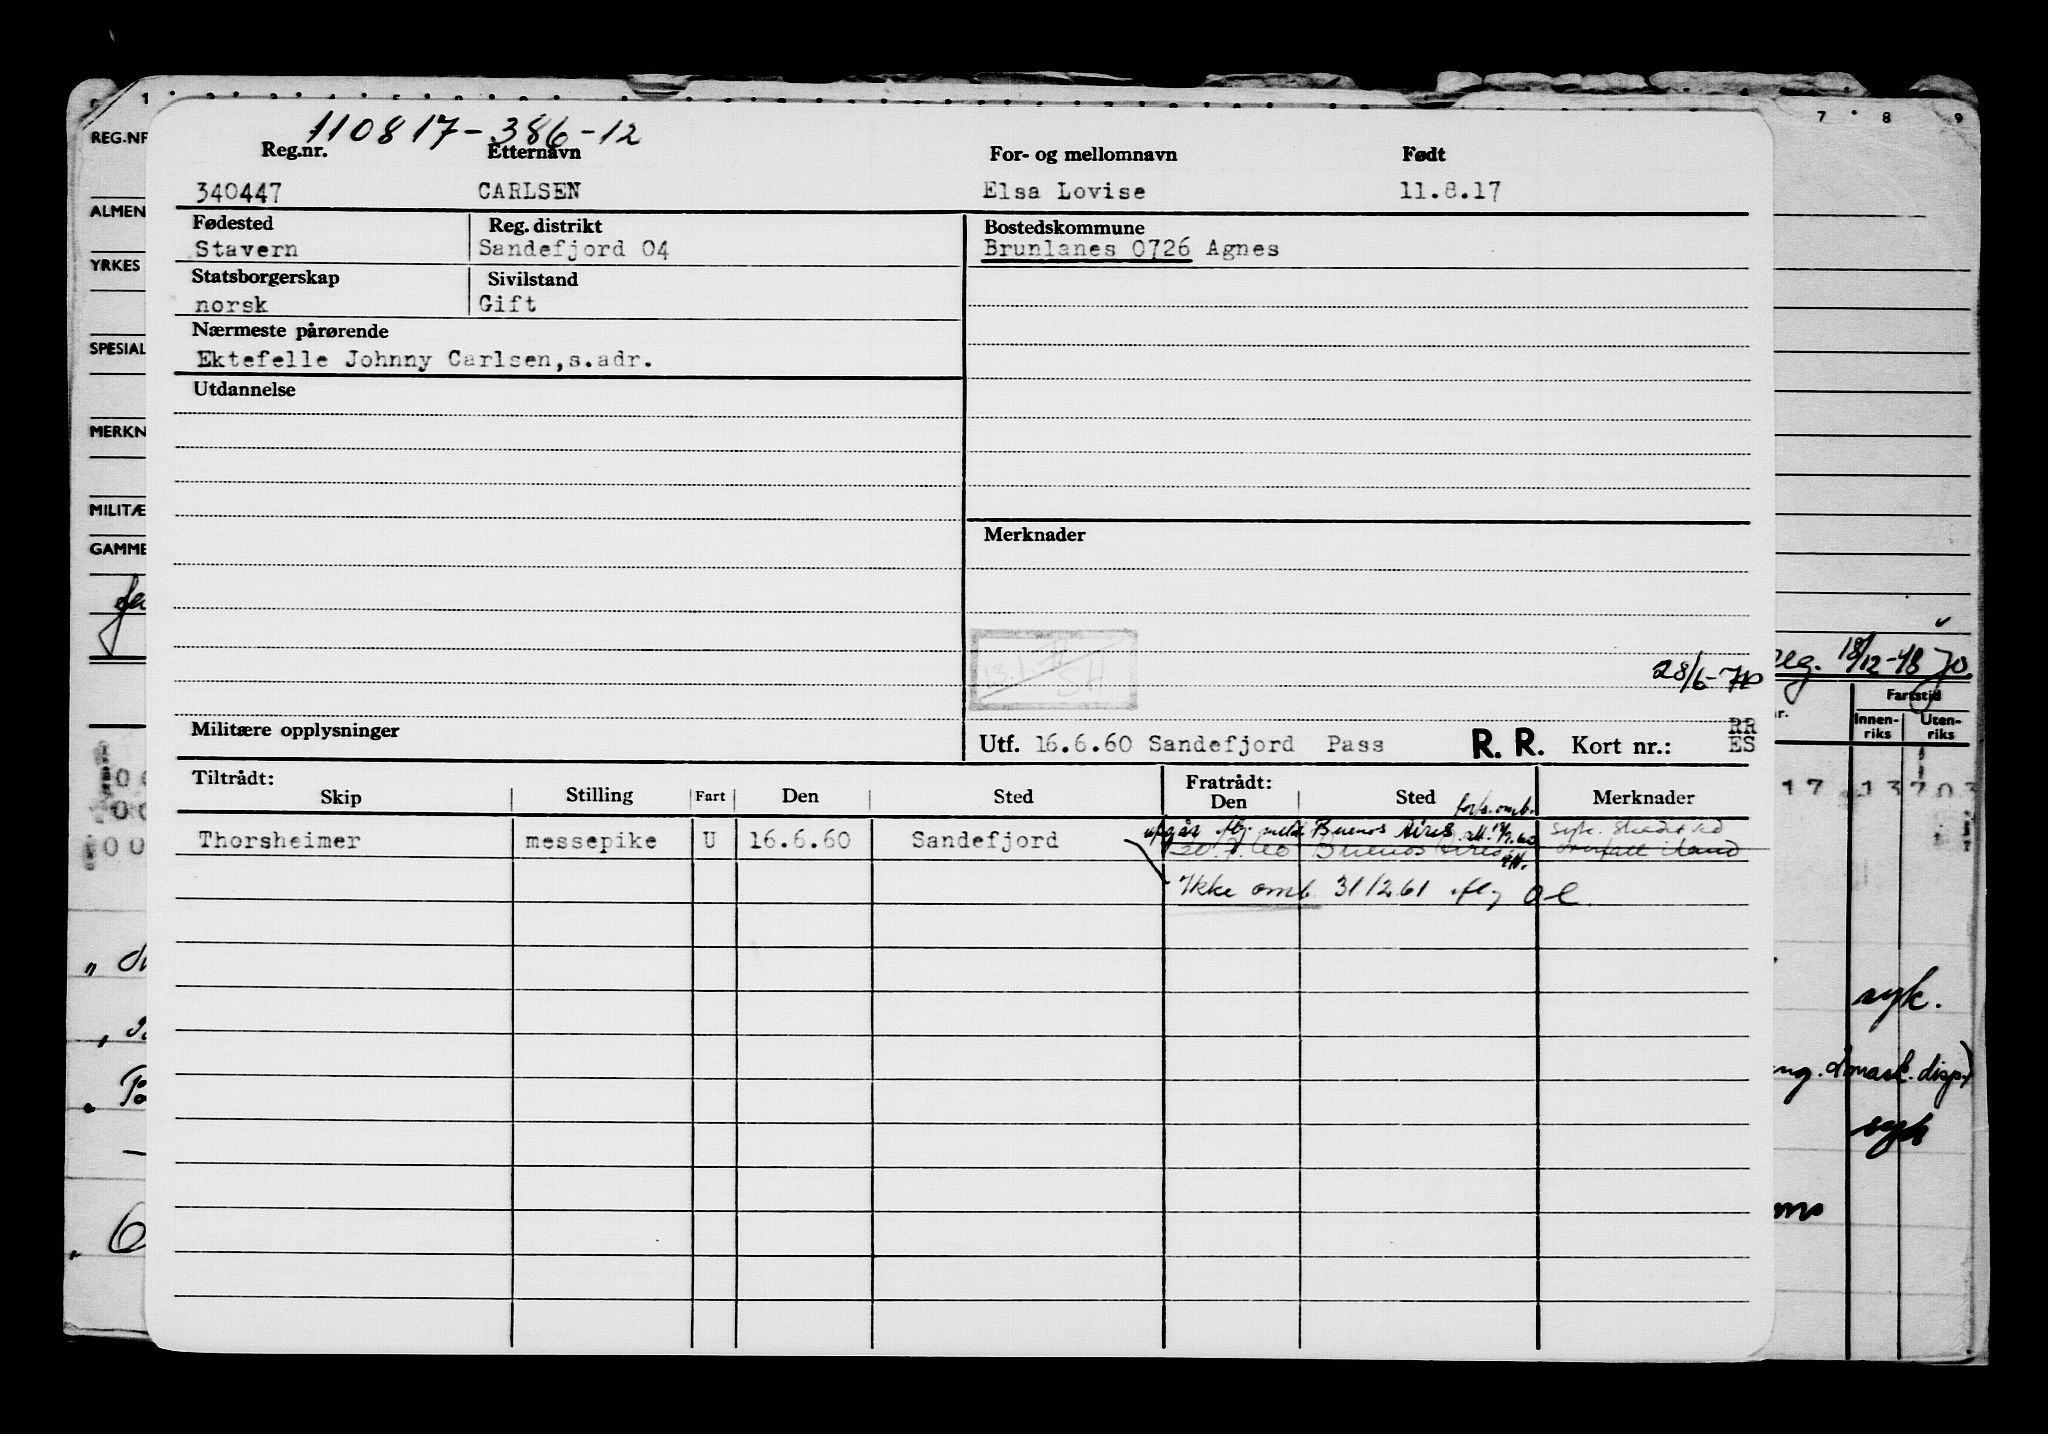 110817-386-12
Reg.nr. Etternavn For- og mellomnavn Født
340447 CARLSEN Elsa Lovise 11.8.17
Fødested Reg. distrikt Bostedskommune
Stavern Sandefjord 04 Brunlanes 0726 Agnes
Statsborgerskap Sivilstand
norsk Gift
Nærmeste pårørende
Ektefelle Johnny Carlsen,s.adr.
Utdannelse
Merknader
28/6-70
Militære opplysninger
Utf. 16.6.60 Sandefjord Pass R. R. Kort nr.: RR
ES
Tiltrådt: Fratrådt:
Skip Stilling Fart Den Sted Den Sted Merknader
Buenos Aires
Thorsheimer messepike U 16.6.60 Sandefjord 30.7.60 Buenos Aires
Ikke omb 31/12.61
REG.NR
ALMEN
YRKES
SPESIAL
MERKN
MILITÆ
GAMME
7 8 9
reg. 18/12-48
Fartstid
Innen-
riks
Uten-
riks
17 13703
syk.
syk